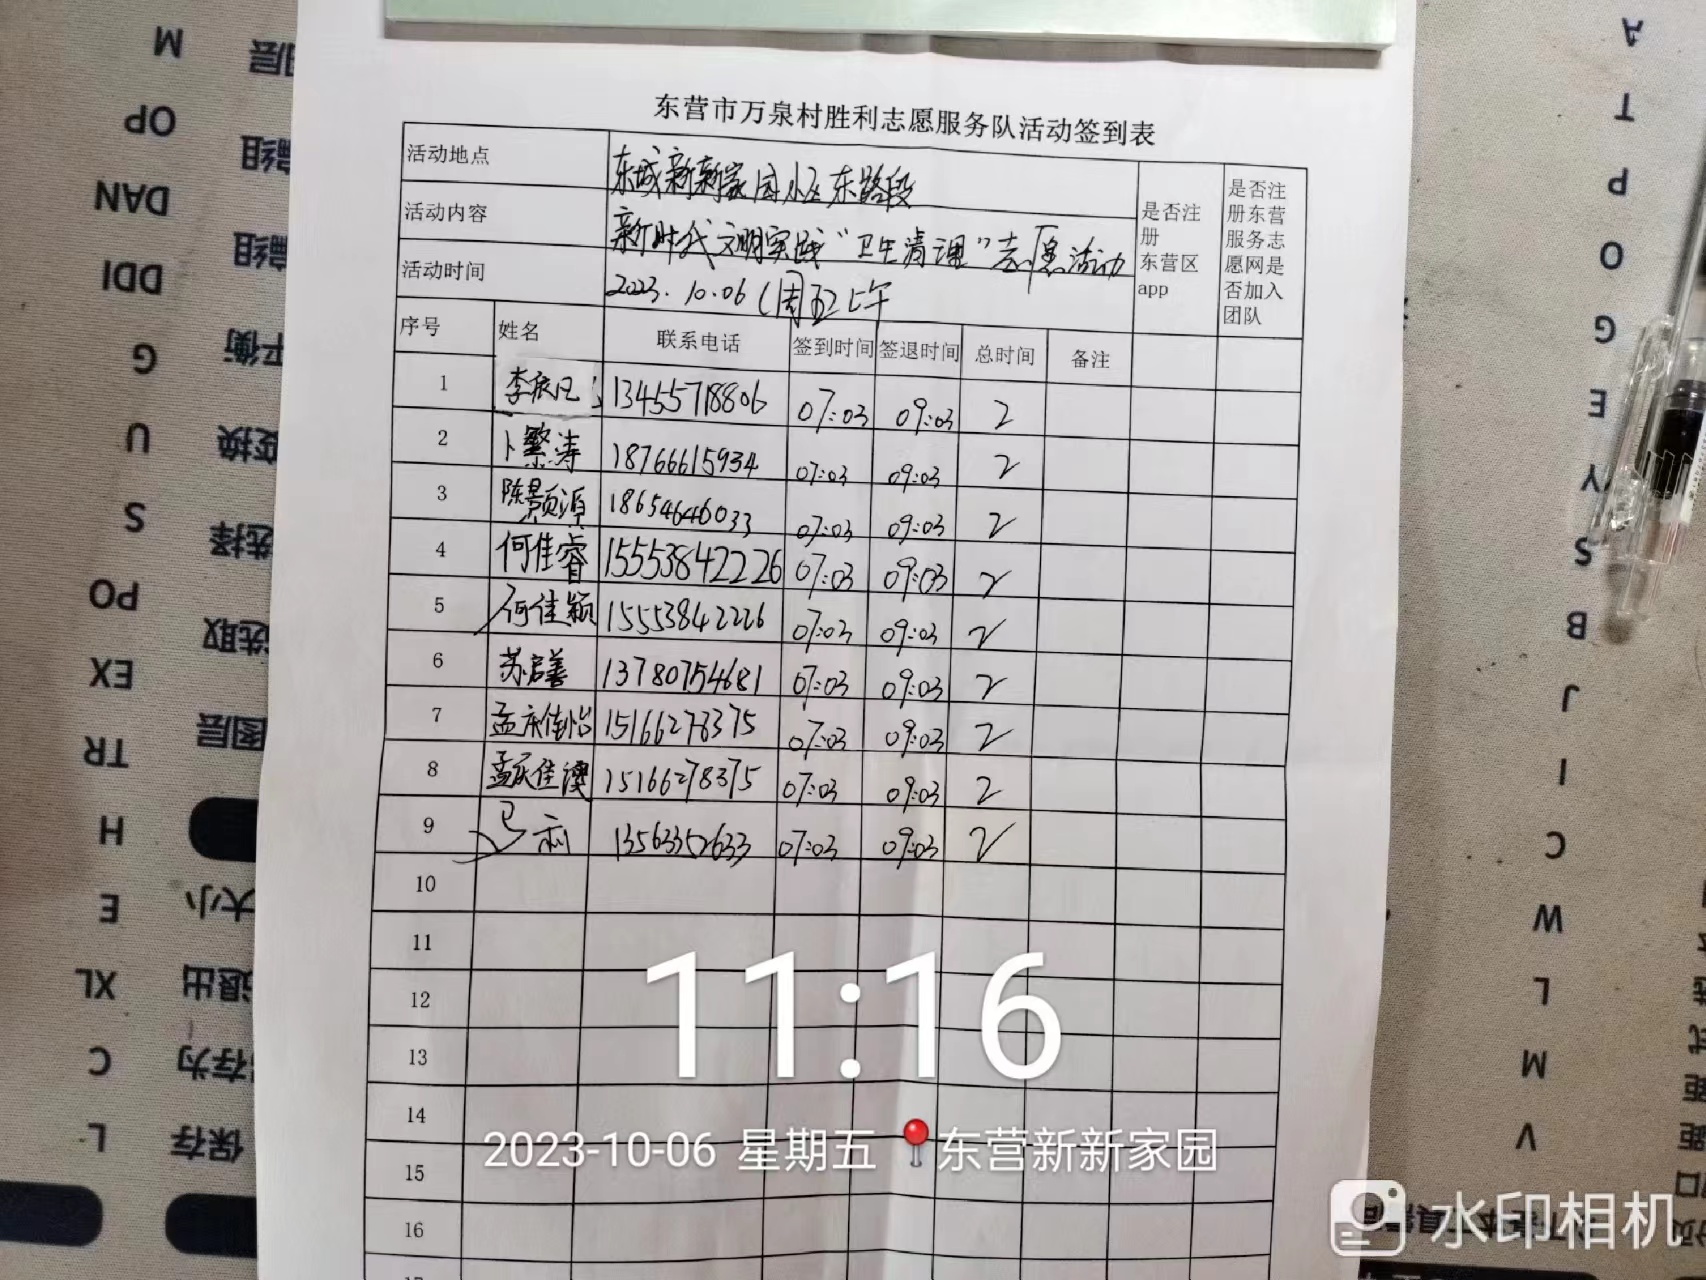 东营市万泉村胜利志愿服务队活动签到表
活动地点 东城新新家园小区东路段
活动内容 新时代文明实践“卫生清理”志愿活动
活动时间 2023.10.06(周五)上午
是否注册东营区app
是否注册东营服务志愿网是否加入团队
序号 姓名 联系电话 签到时间 签退时间 总时间 备注
1 李辰凡 13455718806 07:03 09:03 2
2 卜繁涛 18766615934 07:03 09:03 2
3 陈颢源 18654646033 07:03 09:03 2
4 何佳睿 15553842226 07:03 09:03 2
5 何佳颖 15553842226 07:03 09:03 2
6 苏启善 13780754681 07:03 09:03 2
7 孟庆佳怡 15166278375 07:03 09:03 2
8 孟庆佳澳 15166278375 07:03 09:03 2
9 13563352633 07:03 09:03 2
10
11
12
13
14
15
16
11:16
2023-10-06 星期五 东营新新家园
水印相机
M 图层
OP 编组
DAN 编组
DDI 平衡
G 变换
U 选择
S 选取
PO 图层
EX
TR
H 大小
E 退出
XL 存为
C 保存
L
A
T
P
O
G
E
Y
S
B
J
I
C
W
L
M
V